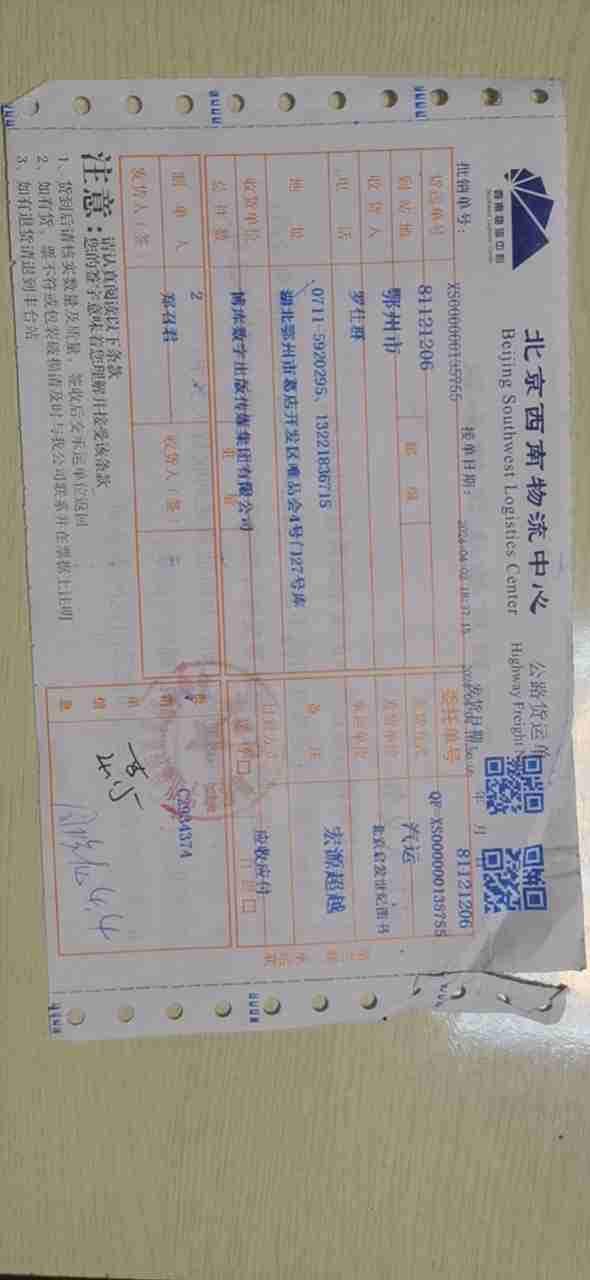 西南物流中心
Southwest Logistics Center
北京西南物流中心
Beijing Southwest Logistics Center
公路货运单
Highway Freight
批销单号：
XS000000135755
接单日期：
2024-04-02 18:37:15
发货日期
年 月
货运单号
81121206
委托单号
81121206
QF-XS0000000135755
到站地
鄂州市
邮编
发货方式
汽运
收货人
罗仕群
发货单位
北京启发世纪图书
电话
0711-5920295、13221836715
承运单位
宏源超越
地址
湖北鄂州市葛店开发区唯品会4号门127号库
备注
收货单位
博库数字出版传媒集团有限公司
付款方式
应收应付
总件数
2
重量
制单人
郑召君
收货人（签）
发货人（签）
C2934374
4.4
注意：
请认真阅读以下条款
您的签字意味着您理解并接受该条款
1、货到后请核实数量及质量，签收后交承运单位返回
2、如有货、票不符或包装破损请及时与我公司联系并在票据上注明
3、如有退货请退到丰台站